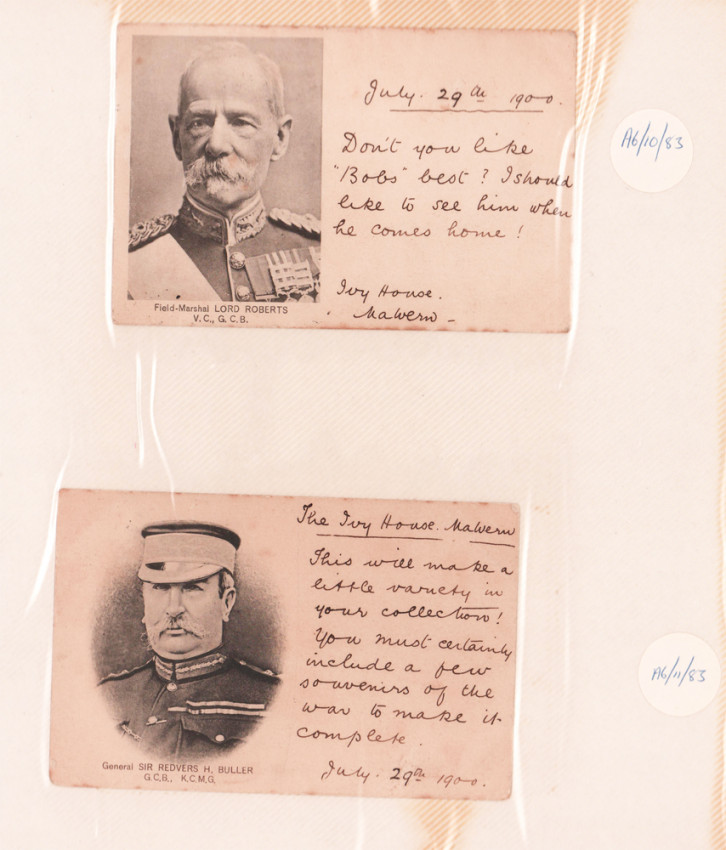 July. 29th 1900.
Don't you like
"Bobs" best? I should
like to see him when
he comes home!
Ivy House.
Malvern -
Field-Marshal LORD ROBERTS
V.C., G.C.B.
A6/10/83
The Ivy House. Malvern
This will make a
little variety in
your collection!
You must certainly
include a few
souvenirs of the
war to make it
complete.
July. 29th 1900.
General SIR REDVERS H. BULLER
G.C.B., K.C.M.G.
A6/11/83